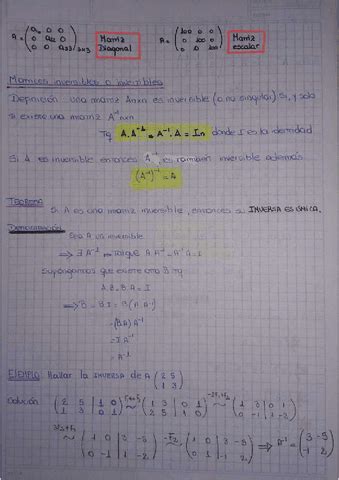 A = (a₁₁ 0 0 / 0 a₂₂ 0 / 0 0 a₃₃)₃ₓ₃ Matriz Diagonal A = (100 0 0 / 0 100 0 / 0 0 100) Matriz escalar
Matrices inversibles o invertibles
Definición: una matriz Anxn es inversible (o no singular) si, y solo
si existe una matriz A⁻¹nxn
Tq A.A⁻¹ = A⁻¹.A = In donde I es la identidad
Si A es inversible entonces A⁻¹ es también inversible además
(A⁻¹)⁻¹ = A
TEOREMA
Si A es una matriz inversible, entonces su INVERSA ES ÚNICA.
Demostración
Sea A es inversible
⇒ ∃ A⁻¹ tal que A A⁻¹ = A⁻¹ A = I
Supongamos que existe otra B tq
A.B = B.A = I
⇒ B = B.I = B(A A⁻¹)
= (B A) A⁻¹
= I A⁻¹
= A⁻¹
EJEMPLO: Hallar la INVERSA de A (2 5 / 1 3)
Solución (2 5 | 1 0 / 1 3 | 0 1) ~ (1 3 | 0 1 / 2 5 | 1 0) ~ (1 3 | 0 1 / 0 -1 | 1 -2)
~ (1 0 | 3 -5 / 0 -1 | 1 -2) ~ (1 0 | 3 -5 / 0 1 | -1 2) ⇒ A⁻¹ = (3 -5 / -1 2)